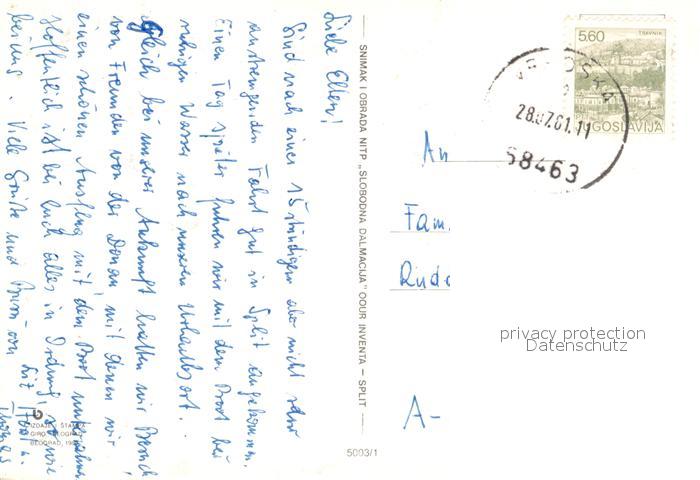 Liebe Eltern!
Sind nach einer 15 stündigen aber nicht sehr
anstrengenden Fahrt gut in Split angekommen.
Einen Tag später fuhren wir mit dem Boot bei
ruhigem Wasser nach unserem Urlaubsort.
Gleich bei unserer Ankunft hatten wir Besuch
von Freunden von der Donau, mit denen wir
einen schönen Ausflug mit dem Boot unternahmen
Hoffentlich ist bei Euch alles in Ordnung,
Viele Grüße und
SNIMAK I OBRADA NITP „SLOBODNA DALMACIJA" OOUR INVENTA – SPLIT
IZDAJE I ŠTAMPA
BEOGRAD,
5003/1
5.60
TRAVNIK
JUGOSLAVIJA
28.07.81.11
58463
An
Fam.
A-
privacy protection
Datenschutz